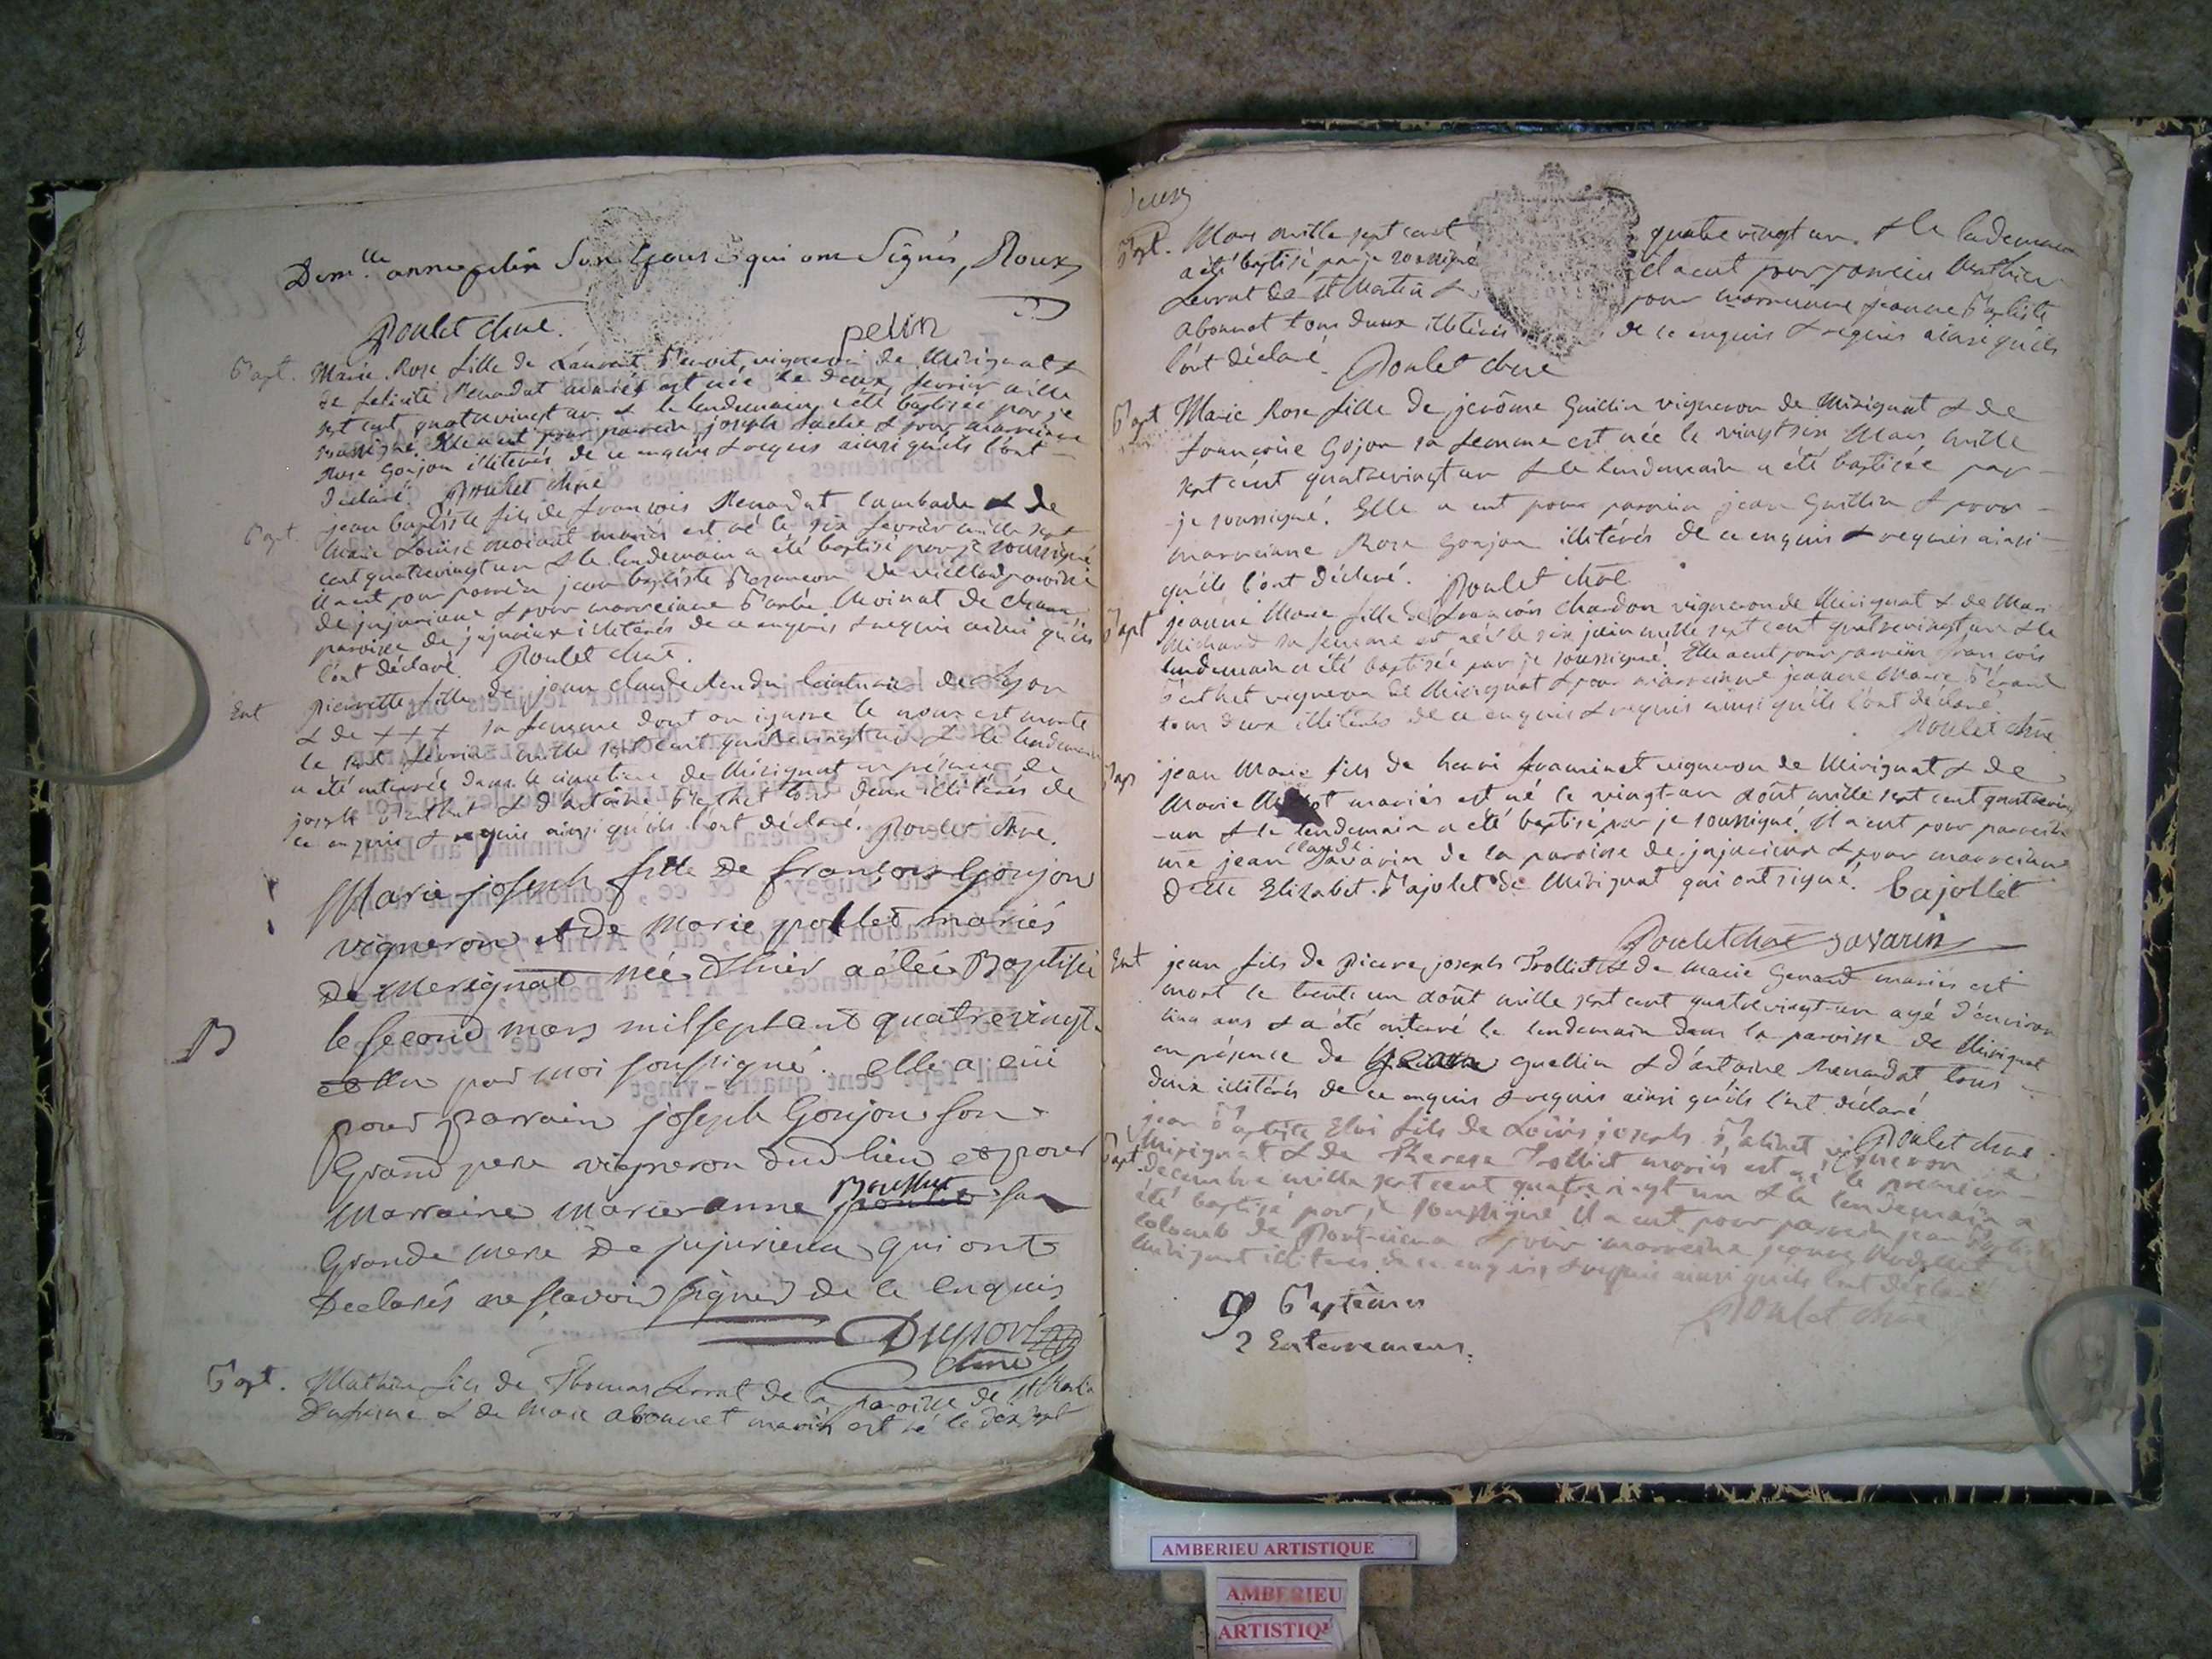 Dem.lle anne pelin son epouse qui ont signés, Roux
Poulet curé. pelin
Bapt. Marie Rose fille de Laurent Benoit, vigneron de Mérignat &
de felicité Renandat mariés est née le deux fevrier mille
sept cent quatrevingt un & le lendemain a été baptisée par je
soussigné. Elle a eut pour parrein joseph & pour marreinne
Rose Goujon illiterés de ce enquis & requis ainsi qu'ils l'ont
déclaré. Poulet curé
Bapt. jean baptiste fils de francois Renandat lambada & de
Marie Louise moinat mariés est né le six fevrier mille sept
cent quatrevingt un & le lendemain a été baptisé par je soussigné
il a eut pour parrein jean baptiste Besançon de paroisse
de jujurieux & pour marreinne Barbe Moinat de
paroisse de jujurieux illiterés de ce enquis & requis ainsi qu'ils
l'ont déclaré. Poulet curé.
Ent pierrette fille de jean claude de Lyon
& de + + + sa femme dont on ignore le nom est morte
le sept fevrier mille sept cent quatrevingt un & le lendemain
a été enterrée dans le cimetiere de Mérignat en présence de
joseph & d'antoine Berthet tous deux illiterés de
ce enquis & requis ainsi qu'ils l'ont déclaré. Poulet curé.
Marie joseph fille de françois Goujon
vigneron & de Marie poulet mariés
de merignat née d'hier a étée Baptisée
B le second mars mil sept cent quatrevingt
et un par moi soussigné. elle a eüe
pour parrain joseph Goujon son
Grand pere vigneron dud lieu et pour
Marraine marie anne sa
Grande mere de jujurieux qui ont
Declarés ne sçavoir signer de ce enquis
Duport
curé
Bapt. Mathieu fils de Thomas Levrat de la paroisse de St Martin
& de Marie abonnet mariés est né le dix sept
deux
Bapt. Mars mille sept cent quatre vingt un. & le lendemain
a été baptisé par je soussigné il a eut pour parrein Mathieu
Levrat de St Martin & pour marreinne jeanne Baptiste
abonnet tous deux illiterés de ce enquis & requis ainsi qu'ils
l'ont déclaré. Poulet curé
Bapt. Marie Rose fille de jerôme Guillin vigneron de Mérignat & de
francoise Gojon sa femme est née le vingt six Mars mille
sept cent quatrevingt un & le lendemain a été baptisée par
je soussigné. Elle a eut pour parrein jean Guillin & pour
marreinne Rose Goujon illiterés de ce enquis & requis ainsi
qu'ils l'ont déclaré. Poulet curé
Bapt jeanne Marie fille de francois chardon vigneron de Mérignat & de Mari
Michard sa femme est née le six juin mille sept cent quatrevingt un & le
lendemain a été baptisée par je soussigné. Elle a eut pour parrein francois
Berthet vigneron de Mérignat & pour marreinne jeanne Marie
tous deux illiterés de ce enquis & requis ainsi qu'ils l'ont déclaré.
Poulet curé
Bap jean Marie fils de henri framinet vigneron de Mérignat & de
Marie mariés est né le vingt-un août mille sept cent quatrevingt
-un & le lendemain a été baptisé par je soussigné. Il a eut pour parrein
me jean claude Savarin de la paroisse de jujurieux & pour marreinne
delle Elizabet Bajolet de Mérignat qui ont signé. bajollet
Poulet curé savarin
Ent jean fils de Pierre joseph Trolliet & de Marie Genard mariés est
mort le trente un août mille sept cent quatrevingt-un agé d'environ
cinq ans & a été enterré le lendemain dans la paroisse de Mérignat
en présence de Guellin & d'antoine Renandat tous
deux illiterés de ce enquis & requis ainsi qu'ils l'ont déclaré
Poulet curé
jean Baptiste Eloi fils de Loüis joseph vigneron de
Bapt. Mérignat & de Therese Trolliet mariés est né le premier
decembre mille sept cent quatre vingt un & le lendemain a
été baptisé par je soussigné. il a eut pour parrein jean Baptiste
colomb de & pour marreine jeanne
Mérignat illiteres de ce enquis & requis ainsi qu'ils l'ont déclaré
Poulet curé
9 Baptêmes
2 Enterremens.
AMBERIEU ARTISTIQUE
AMBERIEU
ARTISTIQ